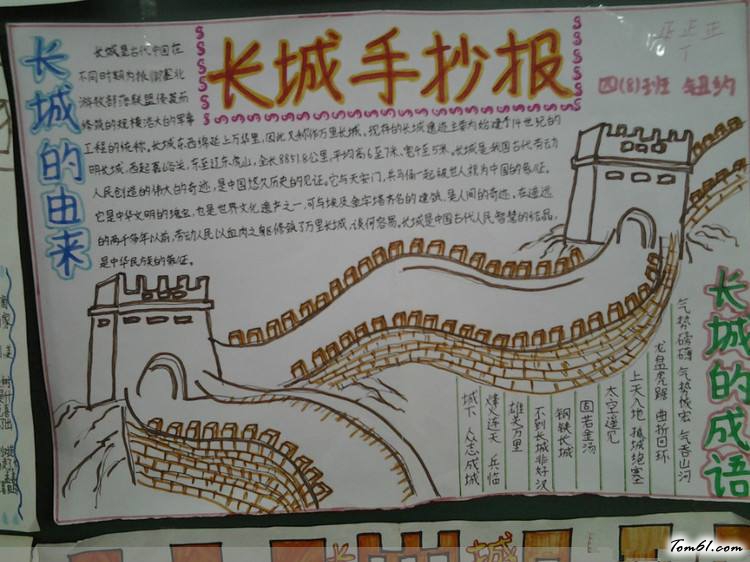 长城手抄报
四(8)班
长城的由来
长城是古代中国在
不同时期为抵御塞北
游牧部落联盟侵袭而
修筑的规模浩大的军事
工程的统称。长城东西绵延上万华里,因此又称作万里长城。现存的长城遗迹主要为始建于14世纪的
明长城,西起嘉峪关,东至辽东虎山,全长8851.8公里,平均高6至7米、宽4至5米。长城是我国古代劳动
人民创造的伟大的奇迹,是中国悠久历史的见证。它与天安门,兵马俑一起被世人视为中国的象征。
它是中华文明的瑰宝,也是世界文化遗产之一,可与埃及金字塔齐名的建筑,是人间的奇迹。在遥远
的两千多年以前,劳动人民以血肉之躯修筑了万里长城,谈何容易。长城是中国古代人民智慧的结晶,
是中华民族的象征。
长城的成语
气势磅礴 气势恢宏 气吞山河
龙盘虎踞 曲折回环
上天入地 孤城绝塞
太空遥见
固若金汤
钢铁长城
不到长城非好汉
雄关万里
烽火连天 兵临
城下 众志成城
长城
Tom61.com